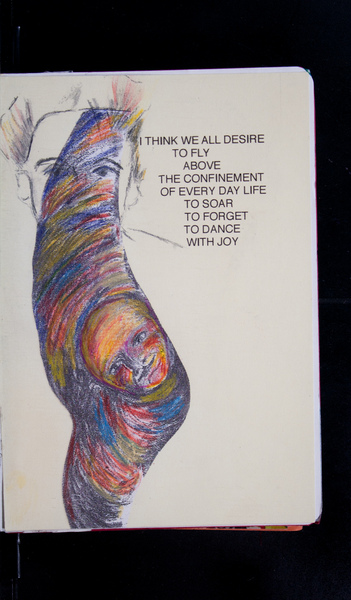 I THINK WE ALL DESIRE
TO FLY
ABOVE
THE CONFINEMENT
OF EVERY DAY LIFE
TO SOAR
TO FORGET
TO DANCE
WITH JOY